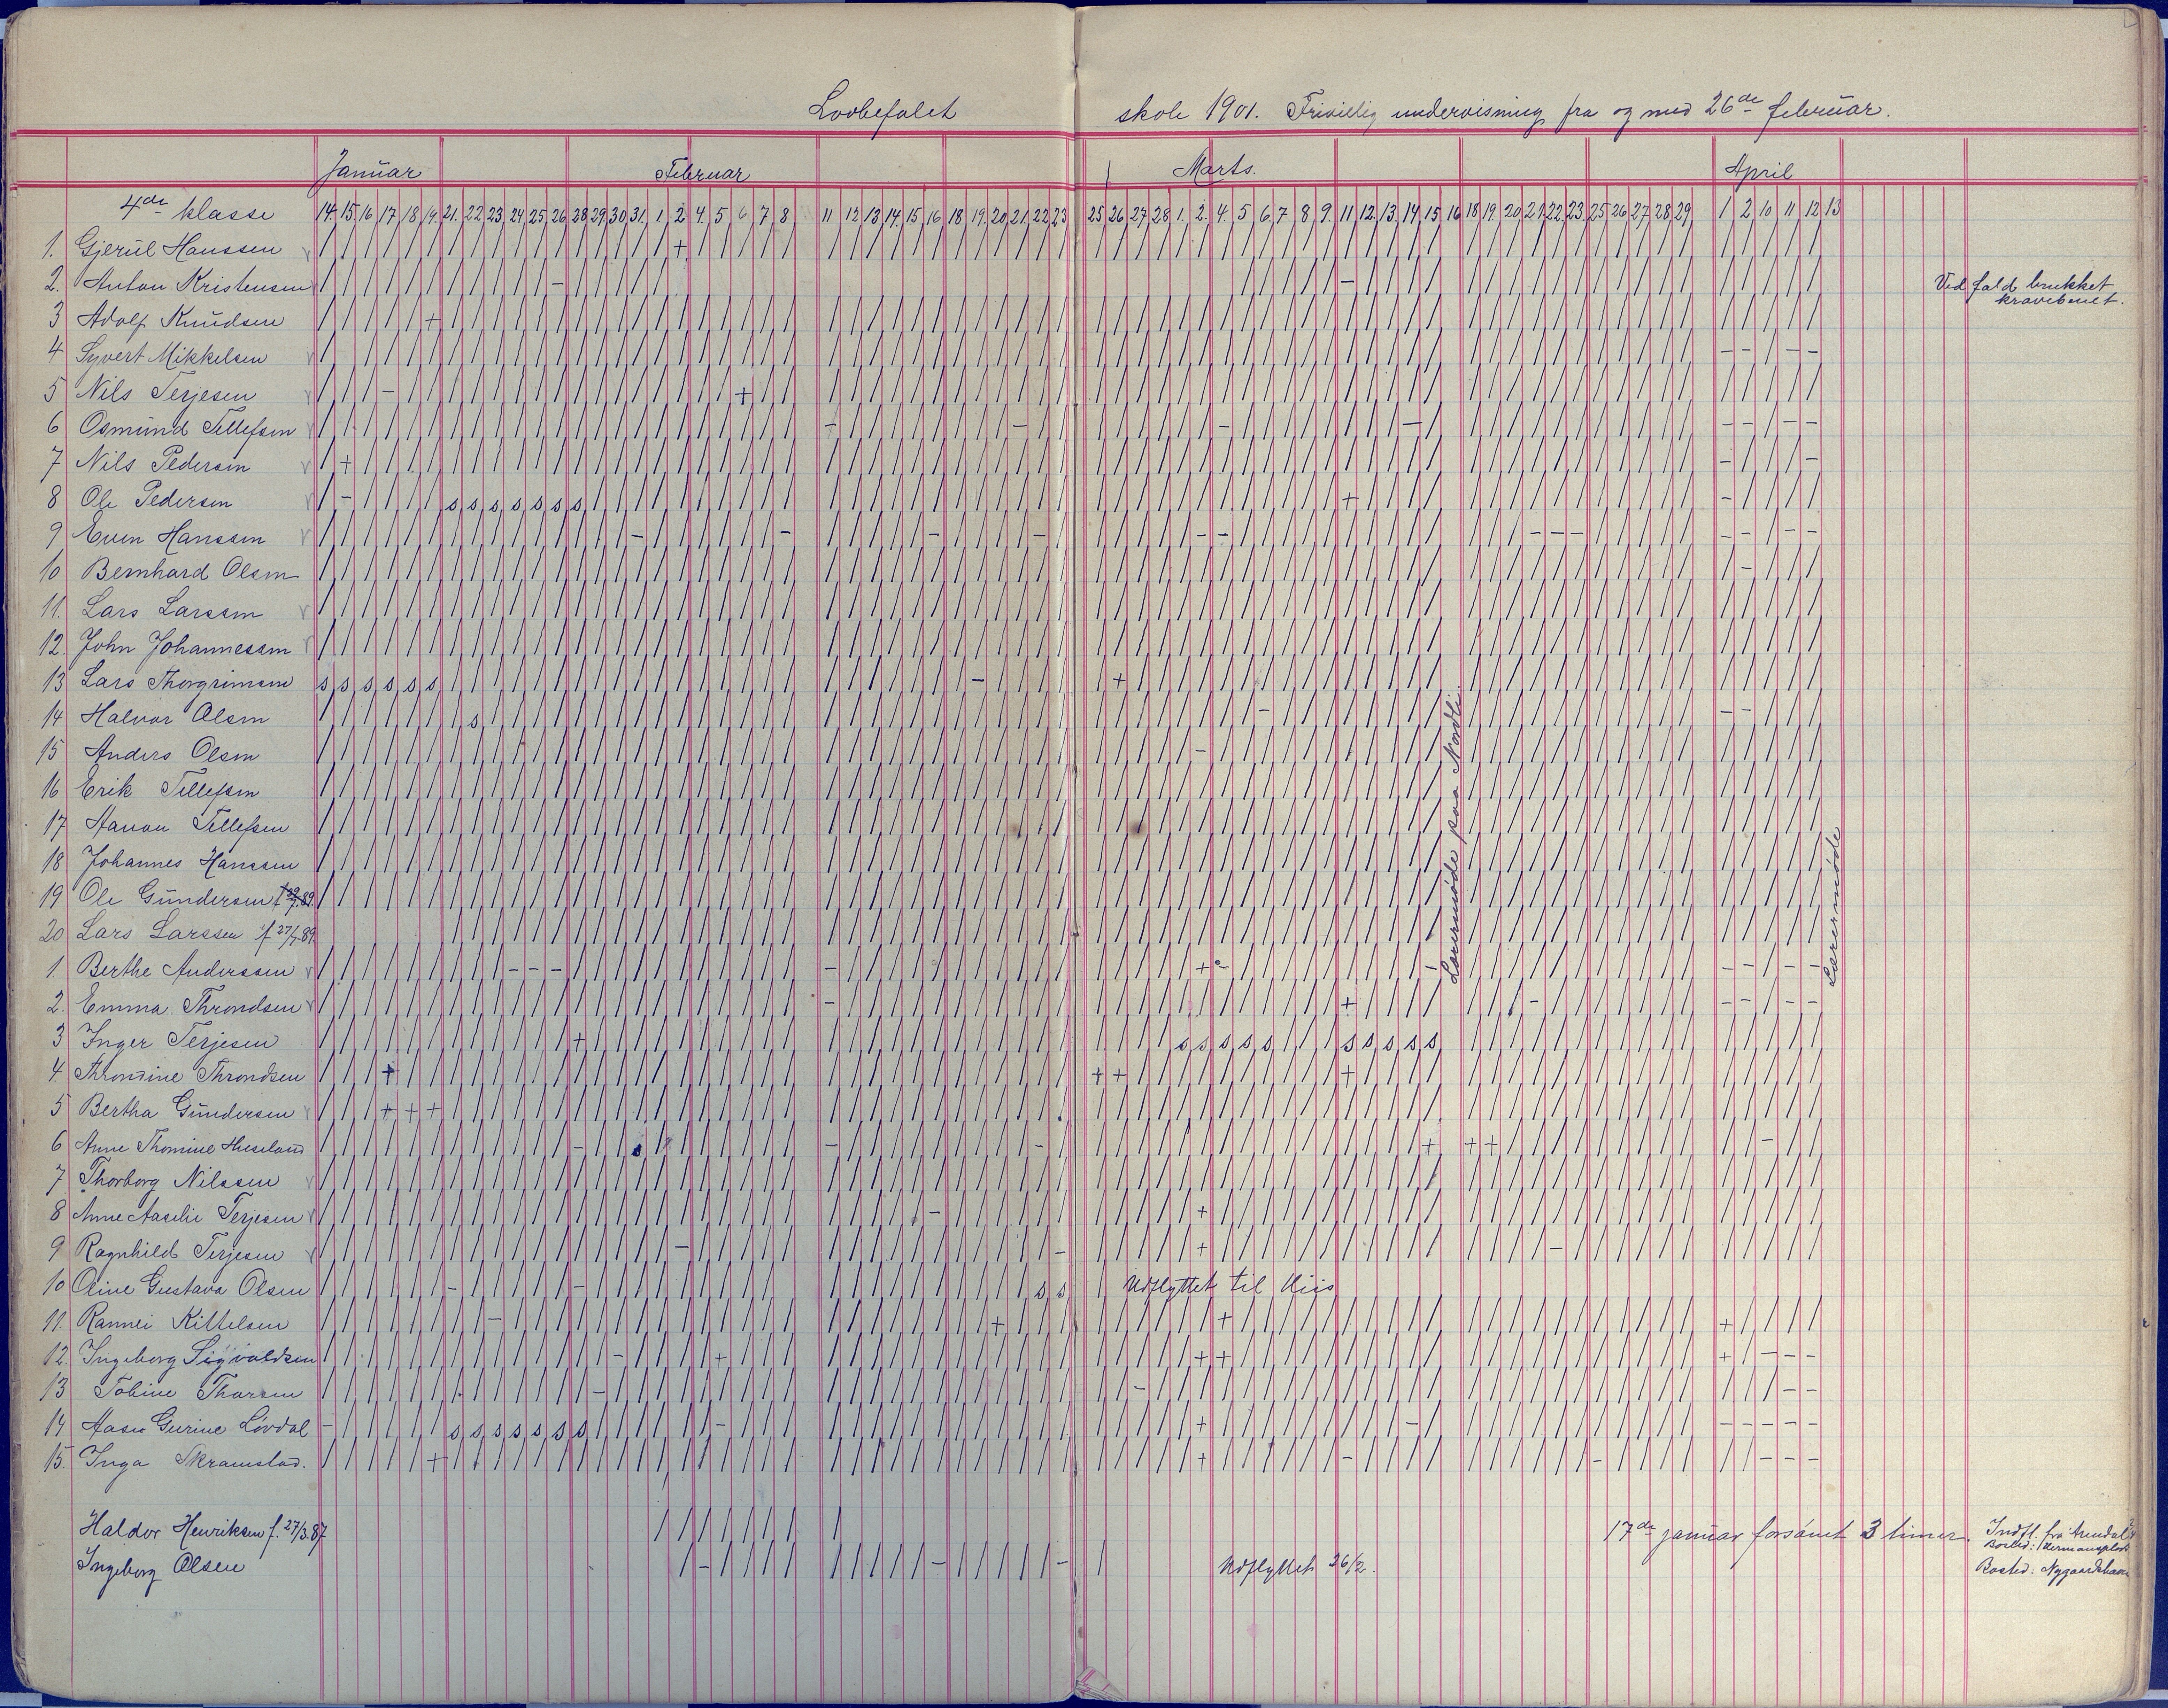 Lovbefalet skole 1901. Frivillig undervisning fra og med 26de februar.
Januar Februar Marts. April
4de klasse 14. 15. 16 17 18 19. 21. 22 23 24 25 26 28 29 30 31. 1. 2 4. 5 6 7 8 11 12 13 14. 15 16 18 19. 20 21. 22 23 25 26 27 28 1. 2. 4. 5 6. 7 8 9. 11. 12. 13. 14 15. 16 18 19. 20 21. 22. 23. 25 26 27 28 29 1 2 10 11 12 13
1. Gjerul Hanssen / / / / / / / / / / / / / / / / / + / / / / / / / / / / / / / / / / / /
2. Anton Kristensen Ved fald brukket
kravebenet.
3 Adolf Knudsen
4 Syvert Mikkelsen
5 Nils Terjesen
6 Osmund Tellefsen
7 Nils Pedersen
8 Ole Pedersen s s s s s s s
9 Even Hanssen
10 Bernhard Olsen
11. Lars Larssen
12. John Johannessen
13 Lars Thorgrimsen s s s s s s
14 Halvor Olsen s
15 Anders Olsen
16 Erik Tellefsen
17 Hanon Tellefsen
18 Johannes Hanssen
19 Ole Gundersen
20 Lars Larssen f 27/7.89.
Lærermøde paa Nordli
Lærermøde
1. Berthe Anderssen
2. Emma Throndsen
3 Inger Terjesen s s s s s s s s s s
4. Throndine Throndsen
5 Bertha Gundersen
6 Anne Thomine Huseland
7 Thorborg Nilssen
8 Anne Aasilie Terjesen
9 Ragnhild Terjesen
10 Oline Gustava Olsen s s Udflyttet til Hiis
11. Rannei Kittelsen
12. Ingeborg Sigvaldsen
13 Tobine Thorsen
14 Aase Gurine Løvdal s s s s s s s
15. Inga Skramstad.
Haldor Henriksen f. 27/3.87 17de januar forsømt 3 timer. Indfl. fra Arendal
Bosted:
Ingeborg Olsen Udflyttet 26/2. Bosted: